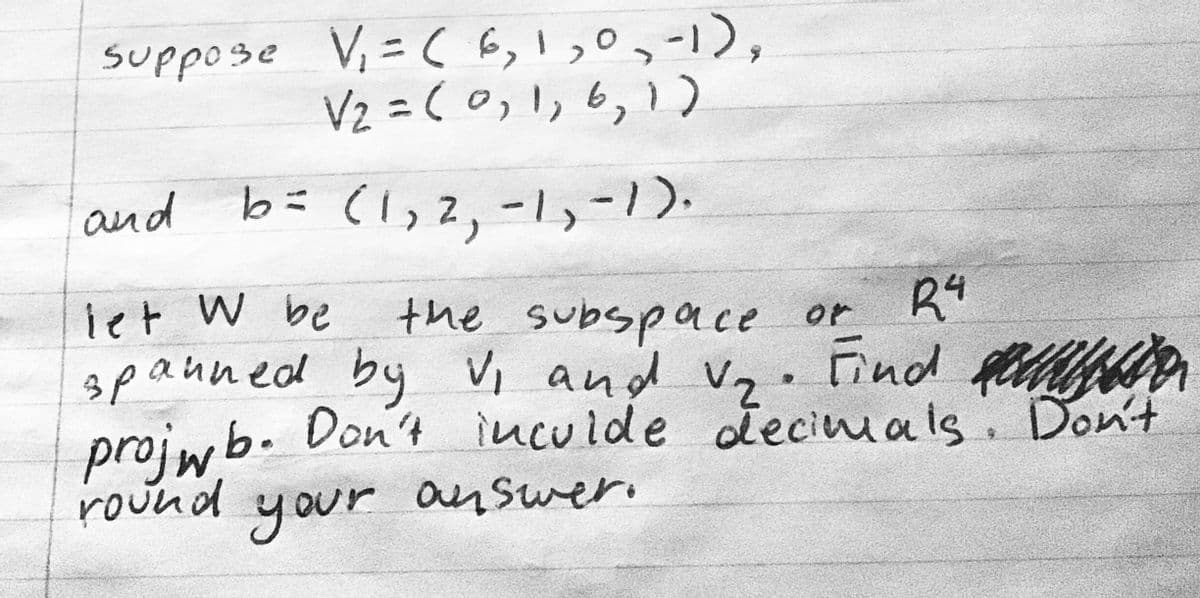 suppose V₁ = ( 6, 1, 0, -1),
V₂ = ( 0, 1, 6, 1)
and b = (1, 2, -1, -1).
let W be the subspace or R⁴
spanned by V₁ and V₂. Find
projwb. Don't inculde decimals. Don't
round your answer.